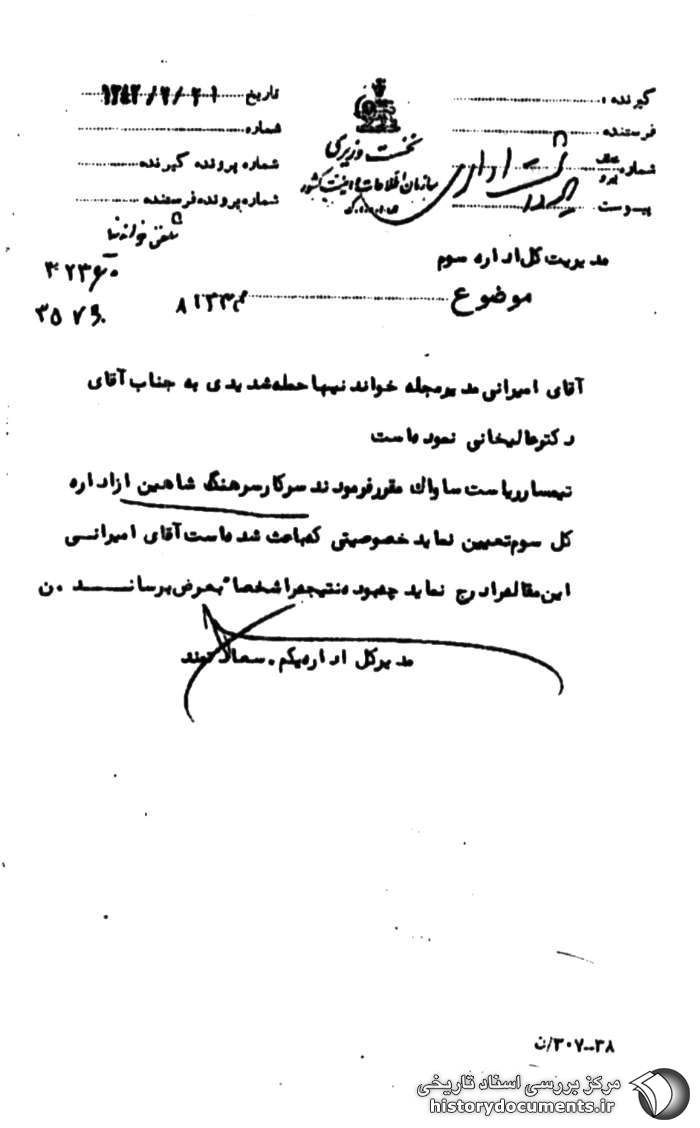 گیرنده
تاریخ ۱۳۴۲/۲/۲۱
فرستنده
شماره
شماره
شماره پرونده گیرنده
پیوست
شماره پرونده فرستنده
نخست وزیری
سازمان اطلاعات و امنیت کشور
س.ا.و.ا.ک
تلفن خواندنیها
مدیریت کل اداره سوم
موضوع
آقای امیرانی مدیرمجله خواندنیها حمله‌شدیدی به جناب آقای
دکترعالیخانی نموده‌است
تیمسارریاست ساواک مقررفرمودند سرکارسرهنگ شاهین ازاداره
کل سوم‌تعیین نماید خصوصیتی که‌باعث شده‌است‌آقای امیرانـی
این‌مقاله‌رادرج نماید چه‌بوده‌نتیجه‌راشخصا" بعرض‌برسانـــــد .ن
مدیرکل اداره‌یکم . سعادتمند
۳۸-۳۰۷/ن
مرکز بررسی اسناد تاریخی
historydocuments.ir